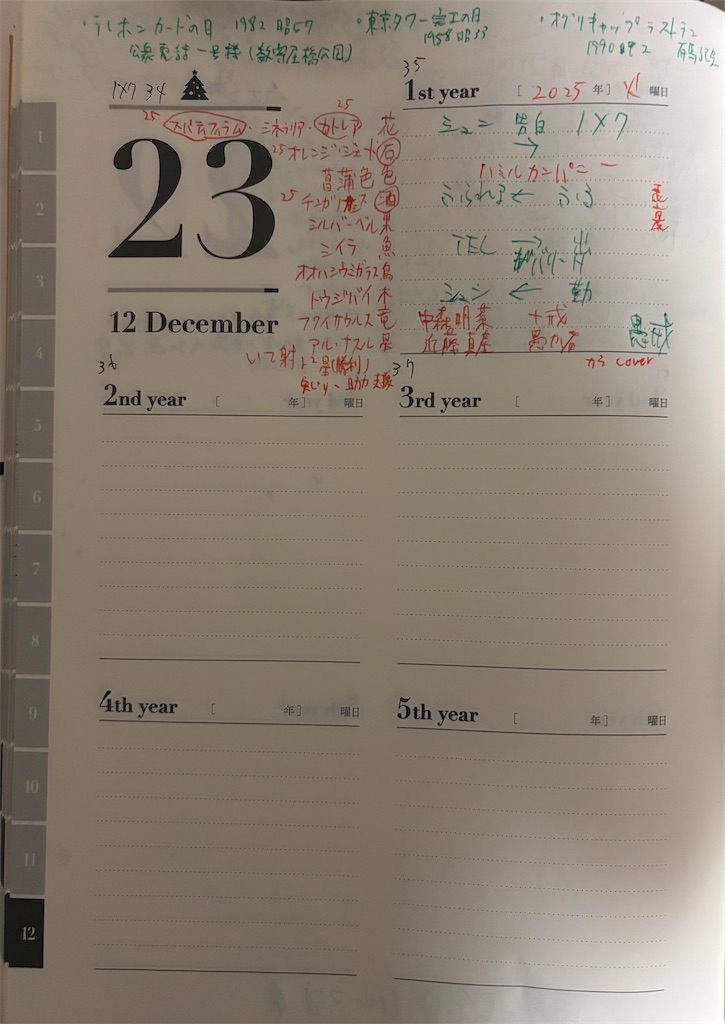 ・テレホンカードの日 1982 昭57 ・東京タワー完工の日 ・オグリキャップラストラン
公衆電話一号機(数寄屋橋公園) 1958 昭33 1990 平2 有馬記念
1×7 34
25 スパティフィラム・シネラリア・カトレア 25 花
25 オレンジ・ジェイト 石
菖蒲色 色
25 チンガ 酒
シルバーベル 果
シイラ 魚
オオハシウミガラス 鳥
トウジバイ 木
フクイサウルス 竜
アル・ナスル 星
いて射
星(勝利)
23
12 December
35
1st year [ 2025 年] 火 曜日
シュン 告白 1×7
→
ハミルカンパニー
ふられる ← ふる
TEL → 出
シュン ← 勤
中森明菜 十戒 愚戒
近藤真彦 愚か者
から cover
36
2nd year [ 年] 曜日
37
3rd year [ 年] 曜日
4th year [ 年] 曜日
5th year [ 年] 曜日
1
2
3
4
5
6
7
8
9
10
11
12